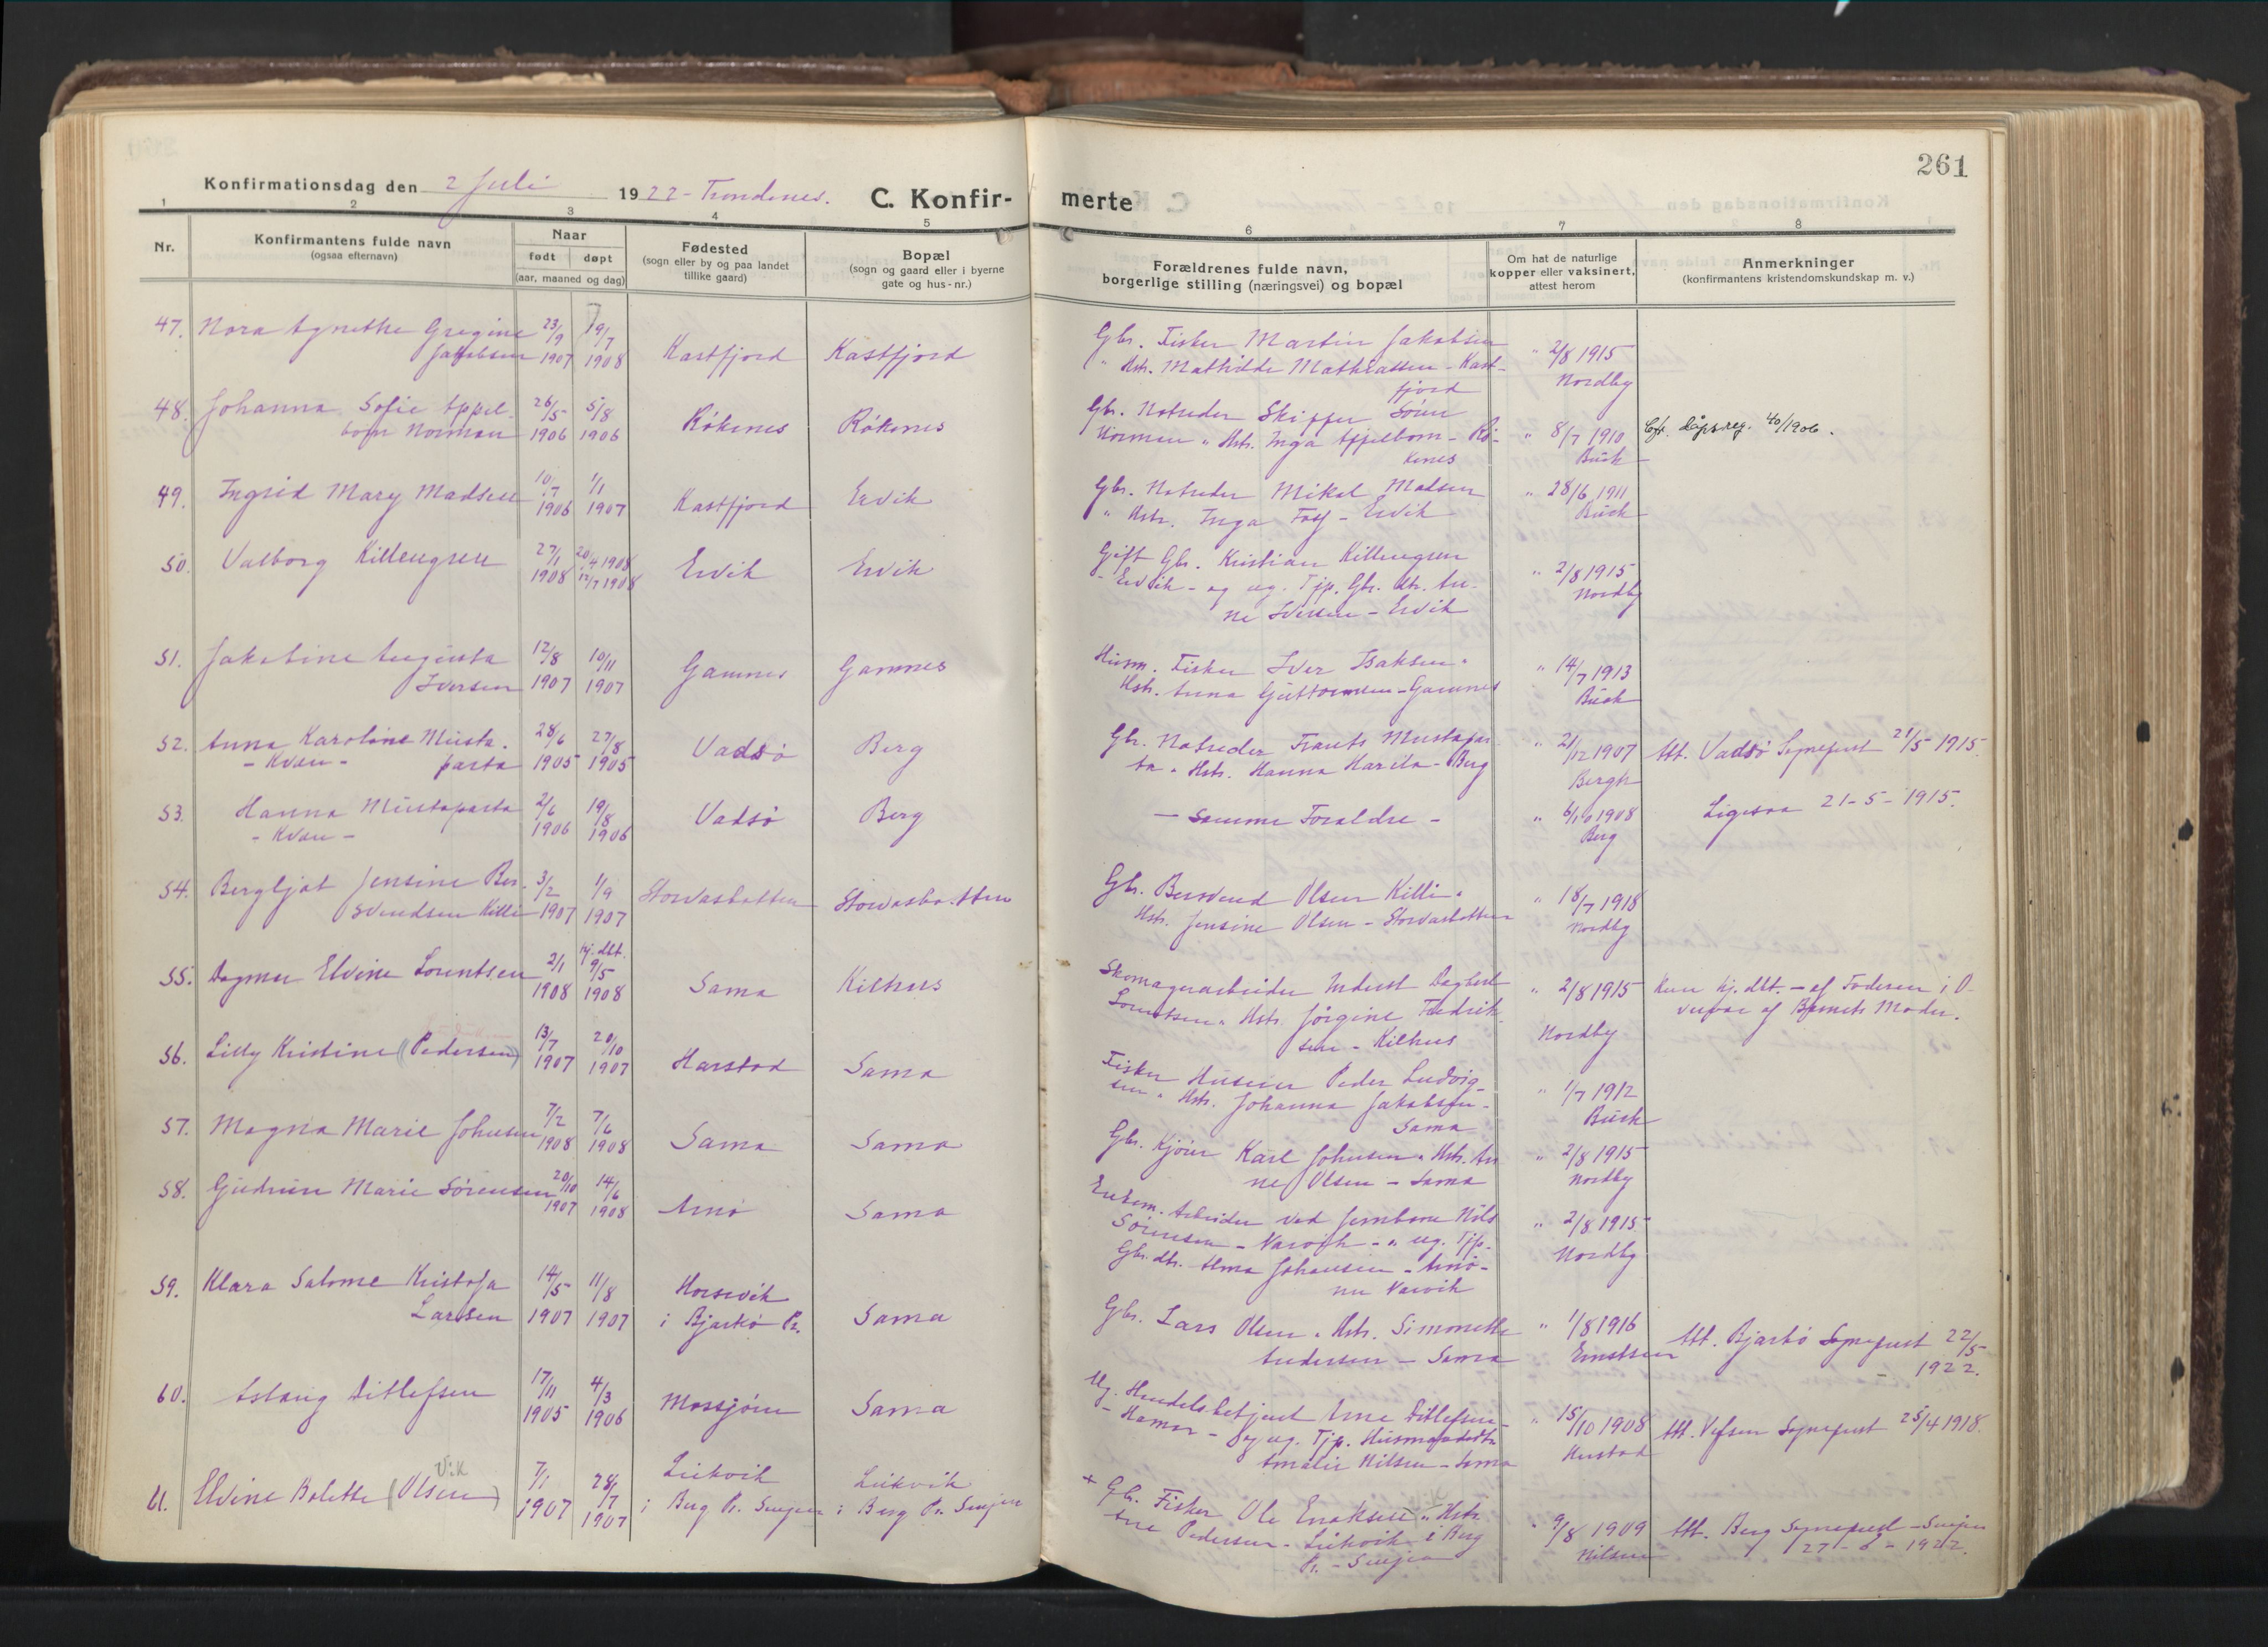 261
Konfirmationsdag den 2 Juli 1922 - Trondenes. C. Konfir- merte
1 2 3 4 5 6 7 8
Nr.
Konfirmantens fulde navn
(ogsaa efternavn)
Naar
født døpt
(aar, maaned og dag)
Fødested
(sogn eller by og paa landet
tillike gaard)
Bopæl
(sogn og gaard eller i byerne
gate og hus-nr.)
Forældrenes fulde navn,
borgerlige stilling (næringsvei) og bopæl
Om hat de naturlige
kopper eller vaksinert,
attest herom
Anmerkninger
(konfirmantens kristendomskundskap m. v.)
47. Nora Agnethe Gregine 23/9 19/7 Gbr. Fisker Martin Jakobsen
Jakobsen 1907 1908 Kastfjord Kastfjord " Hstr. Mathilde Mathiassen - Kast- " 2/8 1915
fjord Nordby
48. Johanna Sofie Appel- 26/5 5/8 Gbr. Notreder Skipper Sören
born Norman 1906 1906 Røkenes Røkenes Norman " Hstr. Inga Appelborn - Rø- " 8/7 1910 Cfr. Dåpsreg. 40/1906.
kenes Buch
49. Ingrid Mary Madsen 10/7 1/1 Gbr. Notreder Mikal Madsen " 28/6 1911
1906 1907 Kastfjord Ervik " Hstr. Inga - Ervik Buch
50. Valborg Killengren 27/1 20/4 1908 Gift Gbr. Kristian Killengren
1908 12/7 1908 Ervik Ervik - Ervik - og ug. Tjp. Gbr. dtr. An- " 2/8 1915
ne Iversen - Ervik Nordby
51. Jakobine Augusta 12/8 10/11 Husm. Fisker Iver Isaksen " " 14/7 1913
Iversen 1907 1907 Gamnes Gamnes Hstr. Anna Guttormsen - Gamnes Buch
52. Anna Karoline Musta- 28/6 27/8 Gbr. Notreder Frants Mustapar- " 21/12 1907 Att. Vadsø Sognepræst 21/5 1915.
- Kvæn - parta 1905 1905 Vadsø Berg ta " Hstr. Hanna Harila - Berg Bergh
53. Hanna Mustaparta 2/6 19/8 - Samme Forældre - " 6/10 1908 Ligesaa 21-5-1915.
- Kvæn - 1906 1906 Vadsø Berg Berg
54. Bergljot Jensine Ber- 3/2 1/9 Gbr. Bersvend Olsen Killi " " 18/7 1918
svendsen Killi 1907 1907 Storvasbotten Storvasbotten Hstr. Jensine Olsen - Storvasbotten Nordby
hj. døt.
55. Dagmar Elvine Lorentsen 2/1 9/5 Skomagerarbeider Indrest Dagbert
1908 1908 Sama Kilhus Lorentsen " Hstr. Jørgine Fredrik- " 2/8 1915 Kun hj. døt. - af Faderen i O-
sen - Kilhus Nordby vervær af Barnets Moder.
56. Lilly Kristine (Pedersen) 13/7 20/10 Fisker Husmen Peder Ludvig-
1907 1907 Harstad Sama sen " Hstr. Johanna Jakobsen - " 1/7 1912
Sama Buch
57. Magna Marie Johnsen 7/2 7/6 Gbr. Kjører Karl Johnsen " Hstr. An- " 2/8 1915
1908 1908 Sama Sama ne Olsen - Sama Nordby
58. Gudrun Marie Sørensen 20/10 14/6 Enkem. Arbeider ved Jernbane Nils
1907 1908 Arnø Sama Sørensen - Narvik - " ug. Tjp. " 2/8 1915
Gbr. dtr. Alma Johansen - Arnø - Nordby
nu Narvik
59. Klara Salome Kristofa 14/5 11/8 Horsevik Gbr. Lars Olsen " Hstr. Simonette " 1/8 1916
Larsen 1907 1907 i Bjarkø Pr. Sama Andersen - Sama Ernstsen Att. Bjarkø Sognepræst 22/5
- 1922.
60. Aslaug Ditlefsen 17/11 4/3 Ug. Handelsbetjent Arne Ditlefsen -
1905 1906 Mosjøen Sama - Hamar - og ug. Tjp. Husmandsdtr. " 15/10 1908 Att. Vefsen Sognepræst 25/4 1918.
Amalie Nilsen - Sama
Vik
61. Elvine Bolette (Olsen) 7/1 28/7 Lukvik Lukvik + Gbr. Fisker Ole Enoksen " Hstr.
1907 1907 i Berg Pr. Senjen i Berg Pr. Senjen Ane Pedersen - Lukvik i Berg " 9/8 1909 Att. Berg Sognepræst - Senjen
Pr. - Senjen Nilsen 27-6-1922.